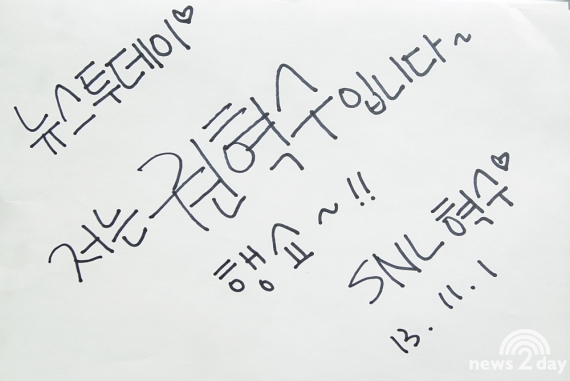 뉴스투데이♡
저는 권혁수입니다~
행쇼~!!
SNL 혁수♡
13. 11. 1
news2day